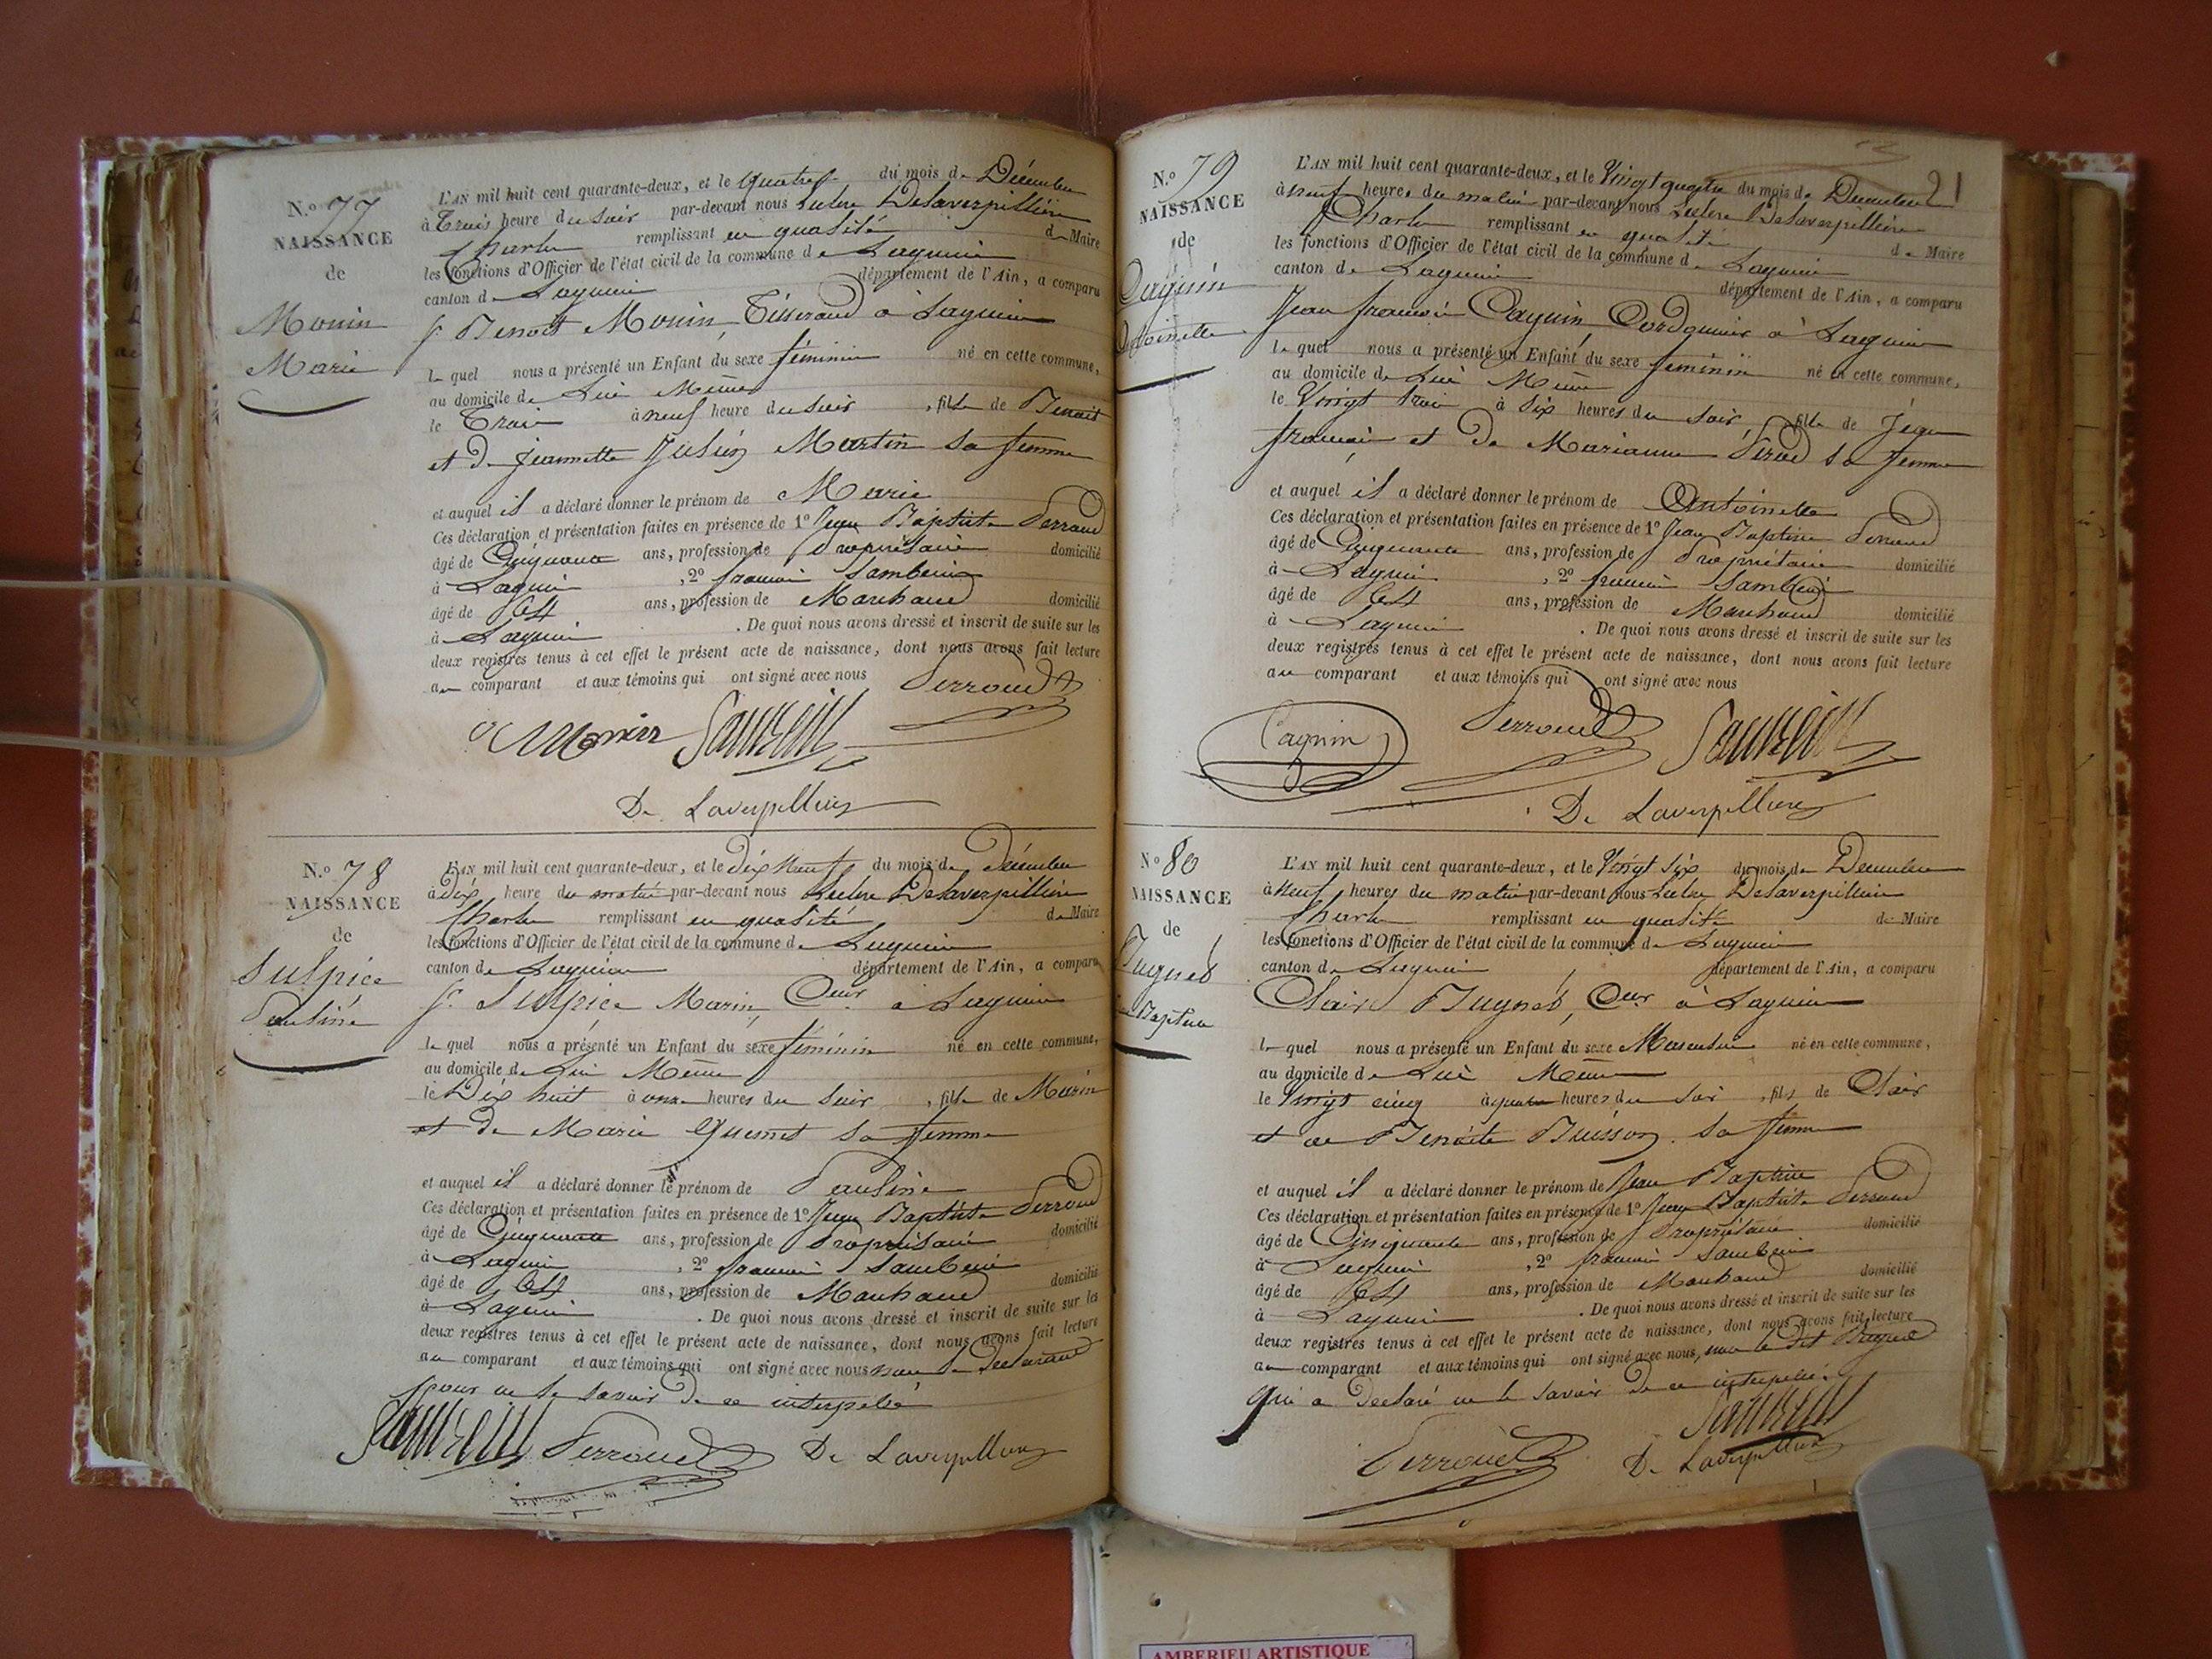 N.o 77
NAISSANCE
de
Monin
Marie
L'AN mil huit cent quarante-deux, et le quatre du mois de Décembre
à Trois heure du soir par-devant nous Leclerc Delaverpillière
Charles remplissant en qualité de Maire
les fonctions d'Officier de l'état civil de la commune de Lagnieu
canton de Lagnieu département de l'Ain, a comparu
Sr Benoit Monin, Tisserand à Lagnieu
le quel nous a présenté un Enfant du sexe féminin né en cette commune,
au domicile de Lui Même
le Trois à neuf heure du soir, fille de Benoit
et de Jeannette Martin sa femme
et auquel il a déclaré donner le prénom de Marie
Ces déclaration et présentation faites en présence de 1o Jean Baptiste Perroud
âgé de Cinquante ans, profession de Propriétaire domicilié
à Lagnieu, 2o françois Sambein
âgé de 64 ans, profession de Marchand domicilié
à Lagnieu. De quoi nous avons dressé et inscrit de suite sur les
deux registres tenus à cet effet le présent acte de naissance, dont nous avons fait lecture
au comparant et aux témoins qui ont signé avec nous
Perroud
Monin Sambein
De Laverpillière
N.o 78
NAISSANCE
de
Sulpice
Pauline
L'AN mil huit cent quarante-deux, et le dix neuf du mois de Décembre
à dix heure du matin par-devant nous Leclerc Delaverpillière
Charles remplissant en qualité de Maire
les fonctions d'Officier de l'état civil de la commune de Lagnieu
canton de Lagnieu département de l'Ain, a comparu
Sr Sulpice Marin, Ouvr à Lagnieu
le quel nous a présenté un Enfant du sexe féminin né en cette commune,
au domicile de Lui Même
le Dix huit à onze heures du soir, fille de Marin
et de Marie sa femme
et auquel il a déclaré donner le prénom de Pauline
Ces déclaration et présentation faites en présence de 1o Jean Baptiste Perroud
âgé de Cinquante ans, profession de Propriétaire domicilié
à Lagnieu, 2o françois Sambein
âgé de 64 ans, profession de Marchand domicilié
à Lagnieu. De quoi nous avons dressé et inscrit de suite sur les
deux registres tenus à cet effet le présent acte de naissance, dont nous avons fait lecture
au comparant et aux témoins qui ont signé avec nous non le déclarant
pour ne le savoir de ce interpellé
Sambein Perroud De Laverpillière
21
N.o 79
NAISSANCE
de
Cagnin
Antoinette
L'AN mil huit cent quarante-deux, et le Vingt quatre du mois de Décembre
à neuf heures du matin par-devant nous Leclerc Delaverpillière
Charles remplissant en qualité de Maire
les fonctions d'Officier de l'état civil de la commune de Lagnieu
canton de Lagnieu département de l'Ain, a comparu
Jean françois Cagnin, Cordonnier à Lagnieu
le quel nous a présenté un Enfant du sexe féminin né en cette commune,
au domicile de Lui Même
le Vingt trois à Six heures du soir, fille de Jean
françois et de Marianne sa femme
et auquel il a déclaré donner le prénom de Antoinette
Ces déclaration et présentation faites en présence de 1o Jean Baptiste Perroud
âgé de Cinquante ans, profession de Propriétaire domicilié
à Lagnieu, 2o françois Sambein
âgé de 64 ans, profession de Marchand domicilié
à Lagnieu. De quoi nous avons dressé et inscrit de suite sur les
deux registres tenus à cet effet le présent acte de naissance, dont nous avons fait lecture
au comparant et aux témoins qui ont signé avec nous
Cagnin Perroud Sambein
De Laverpillière
No 80
NAISSANCE
de
Bugnod
Baptiste
L'AN mil huit cent quarante-deux, et le Vingt Six du mois de Décembre
à neuf heures du matin par-devant nous Leclerc Delaverpillière
Charles remplissant en qualité de Maire
les fonctions d'Officier de l'état civil de la commune de Lagnieu
canton de Lagnieu département de l'Ain, a comparu
Clair Bugnod, Ouvr à Lagnieu
le quel nous a présenté un Enfant du sexe Masculin né en cette commune,
au domicile de Lui Même
le Vingt cinq à quatre heures du soir, fils de Clair
et de Benoite Buisson sa femme
et auquel il a déclaré donner le prénom de Jean Baptiste
Ces déclaration et présentation faites en présence de 1o Jean Baptiste Perroud
âgé de Cinquante ans, profession de Propriétaire domicilié
à Lagnieu, 2o françois Sambein
âgé de 64 ans, profession de Marchand domicilié
à Lagnieu. De quoi nous avons dressé et inscrit de suite sur les
deux registres tenus à cet effet le présent acte de naissance, dont nous avons fait lecture
au comparant et aux témoins qui ont signé avec nous, non le dit Bugnod
qui a déclaré ne le savoir de ce interpellé.
Sambein
Perroud De Laverpillière
AMBERIEU ARTISTIQUE